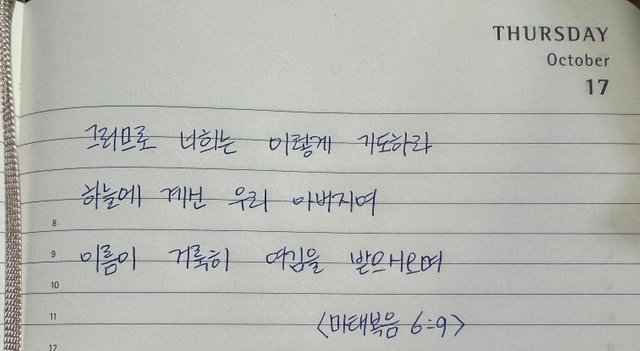 THURSDAY
October
17
그러므로 너희는 이렇게 기도하라
하늘에 계신 우리 아버지여
8
9 이름이 거룩히 여김을 받으시오며
10
11 <마태복음 6:9>
12